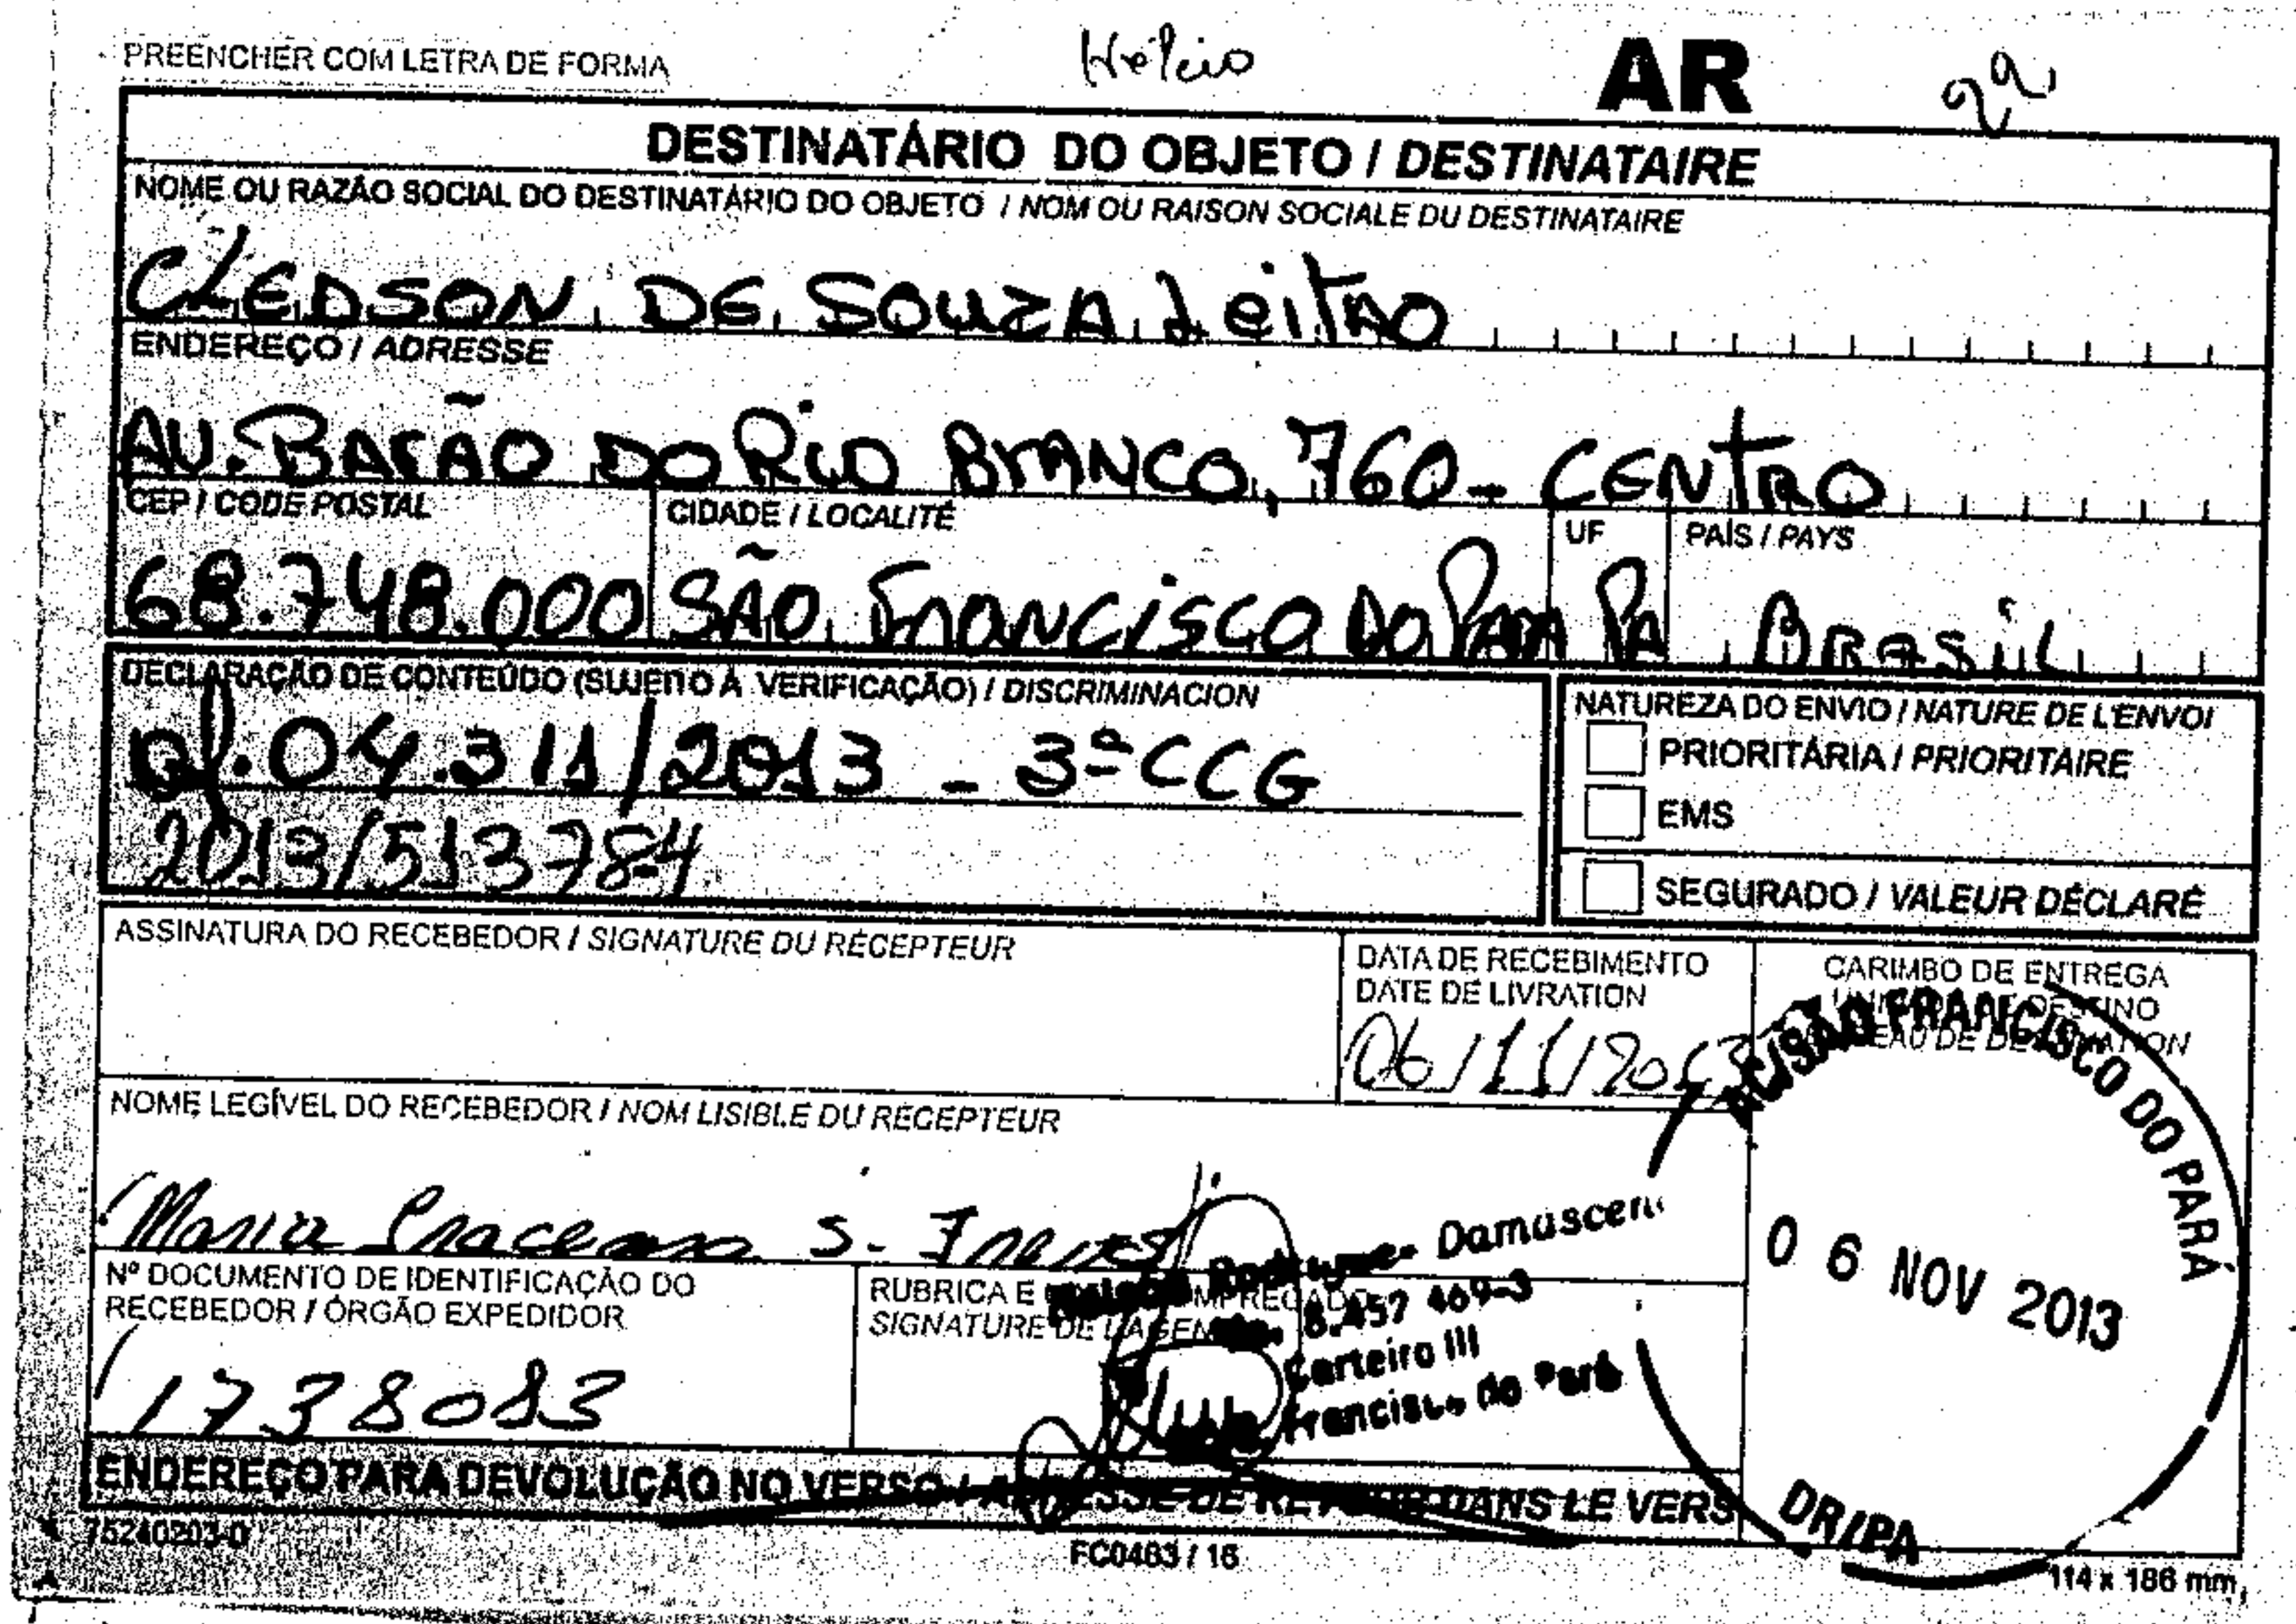 PREENCHER COM LETRA DE FORMA
Hélcio
AR
2ª
DESTINATÁRIO DO OBJETO / DESTINATAIRE
NOME OU RAZÃO SOCIAL DO DESTINATÁRIO DO OBJETO / NOM OU RAISON SOCIALE DU DESTINATAIRE
CLEDSON DE SOUZA LeiTAO
ENDEREÇO / ADRESSE
AV. BARÃO DO RIO BRANCO, 760 - CENTRO
CEP / CODE POSTAL
CIDADE / LOCALITÉ
UF
PAÍS / PAYS
68.748.000 SÃO FRANCISCO DO PARA PA BRASIL
DECLARAÇÃO DE CONTEÚDO (SUJEITO À VERIFICAÇÃO) / DISCRIMINACION
Of. 04.311/2013 - 3ª CCG
2013/513784
NATUREZA DO ENVIO / NATURE DE L'ENVOI
PRIORITÁRIA / PRIORITAIRE
EMS
SEGURADO / VALEUR DÉCLARÉ
ASSINATURA DO RECEBEDOR / SIGNATURE DU RÉCEPTEUR
DATA DE RECEBIMENTO
DATE DE LIVRATION
06/11/2013
CARIMBO DE ENTREGA
AC/SÃO FRANCISCO DO PARÁ
06 NOV 2013
DR/PA
NOME LEGÍVEL DO RECEBEDOR / NOM LISIBLE DU RÉCEPTEUR
Maria S.
Nº DOCUMENTO DE IDENTIFICAÇÃO DO
RECEBEDOR / ÓRGÃO EXPEDIDOR
1738083
RUBRICA E
SIGNATURE DE L'AGENT
Damasceno
8.457 469-3
Carteiro III
Francisco do Pará
ENDEREÇO PARA DEVOLUÇÃO NO VERSO / ADRESSE DE RETOUR DANS LE VERS
75240203-0
FC0463 / 16
114 x 186 mm